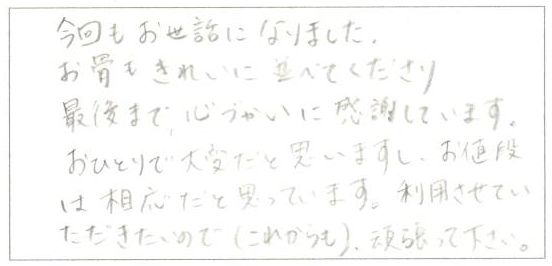 今回もお世話になりました.
お骨もきれいに並べてくださり
最後まで、心づかいに感謝しています。
おひとりで大変だと思いますし、お値段
は相応だと思っています。利用させてい
ただきたいので(これからも)、頑張って下さい。